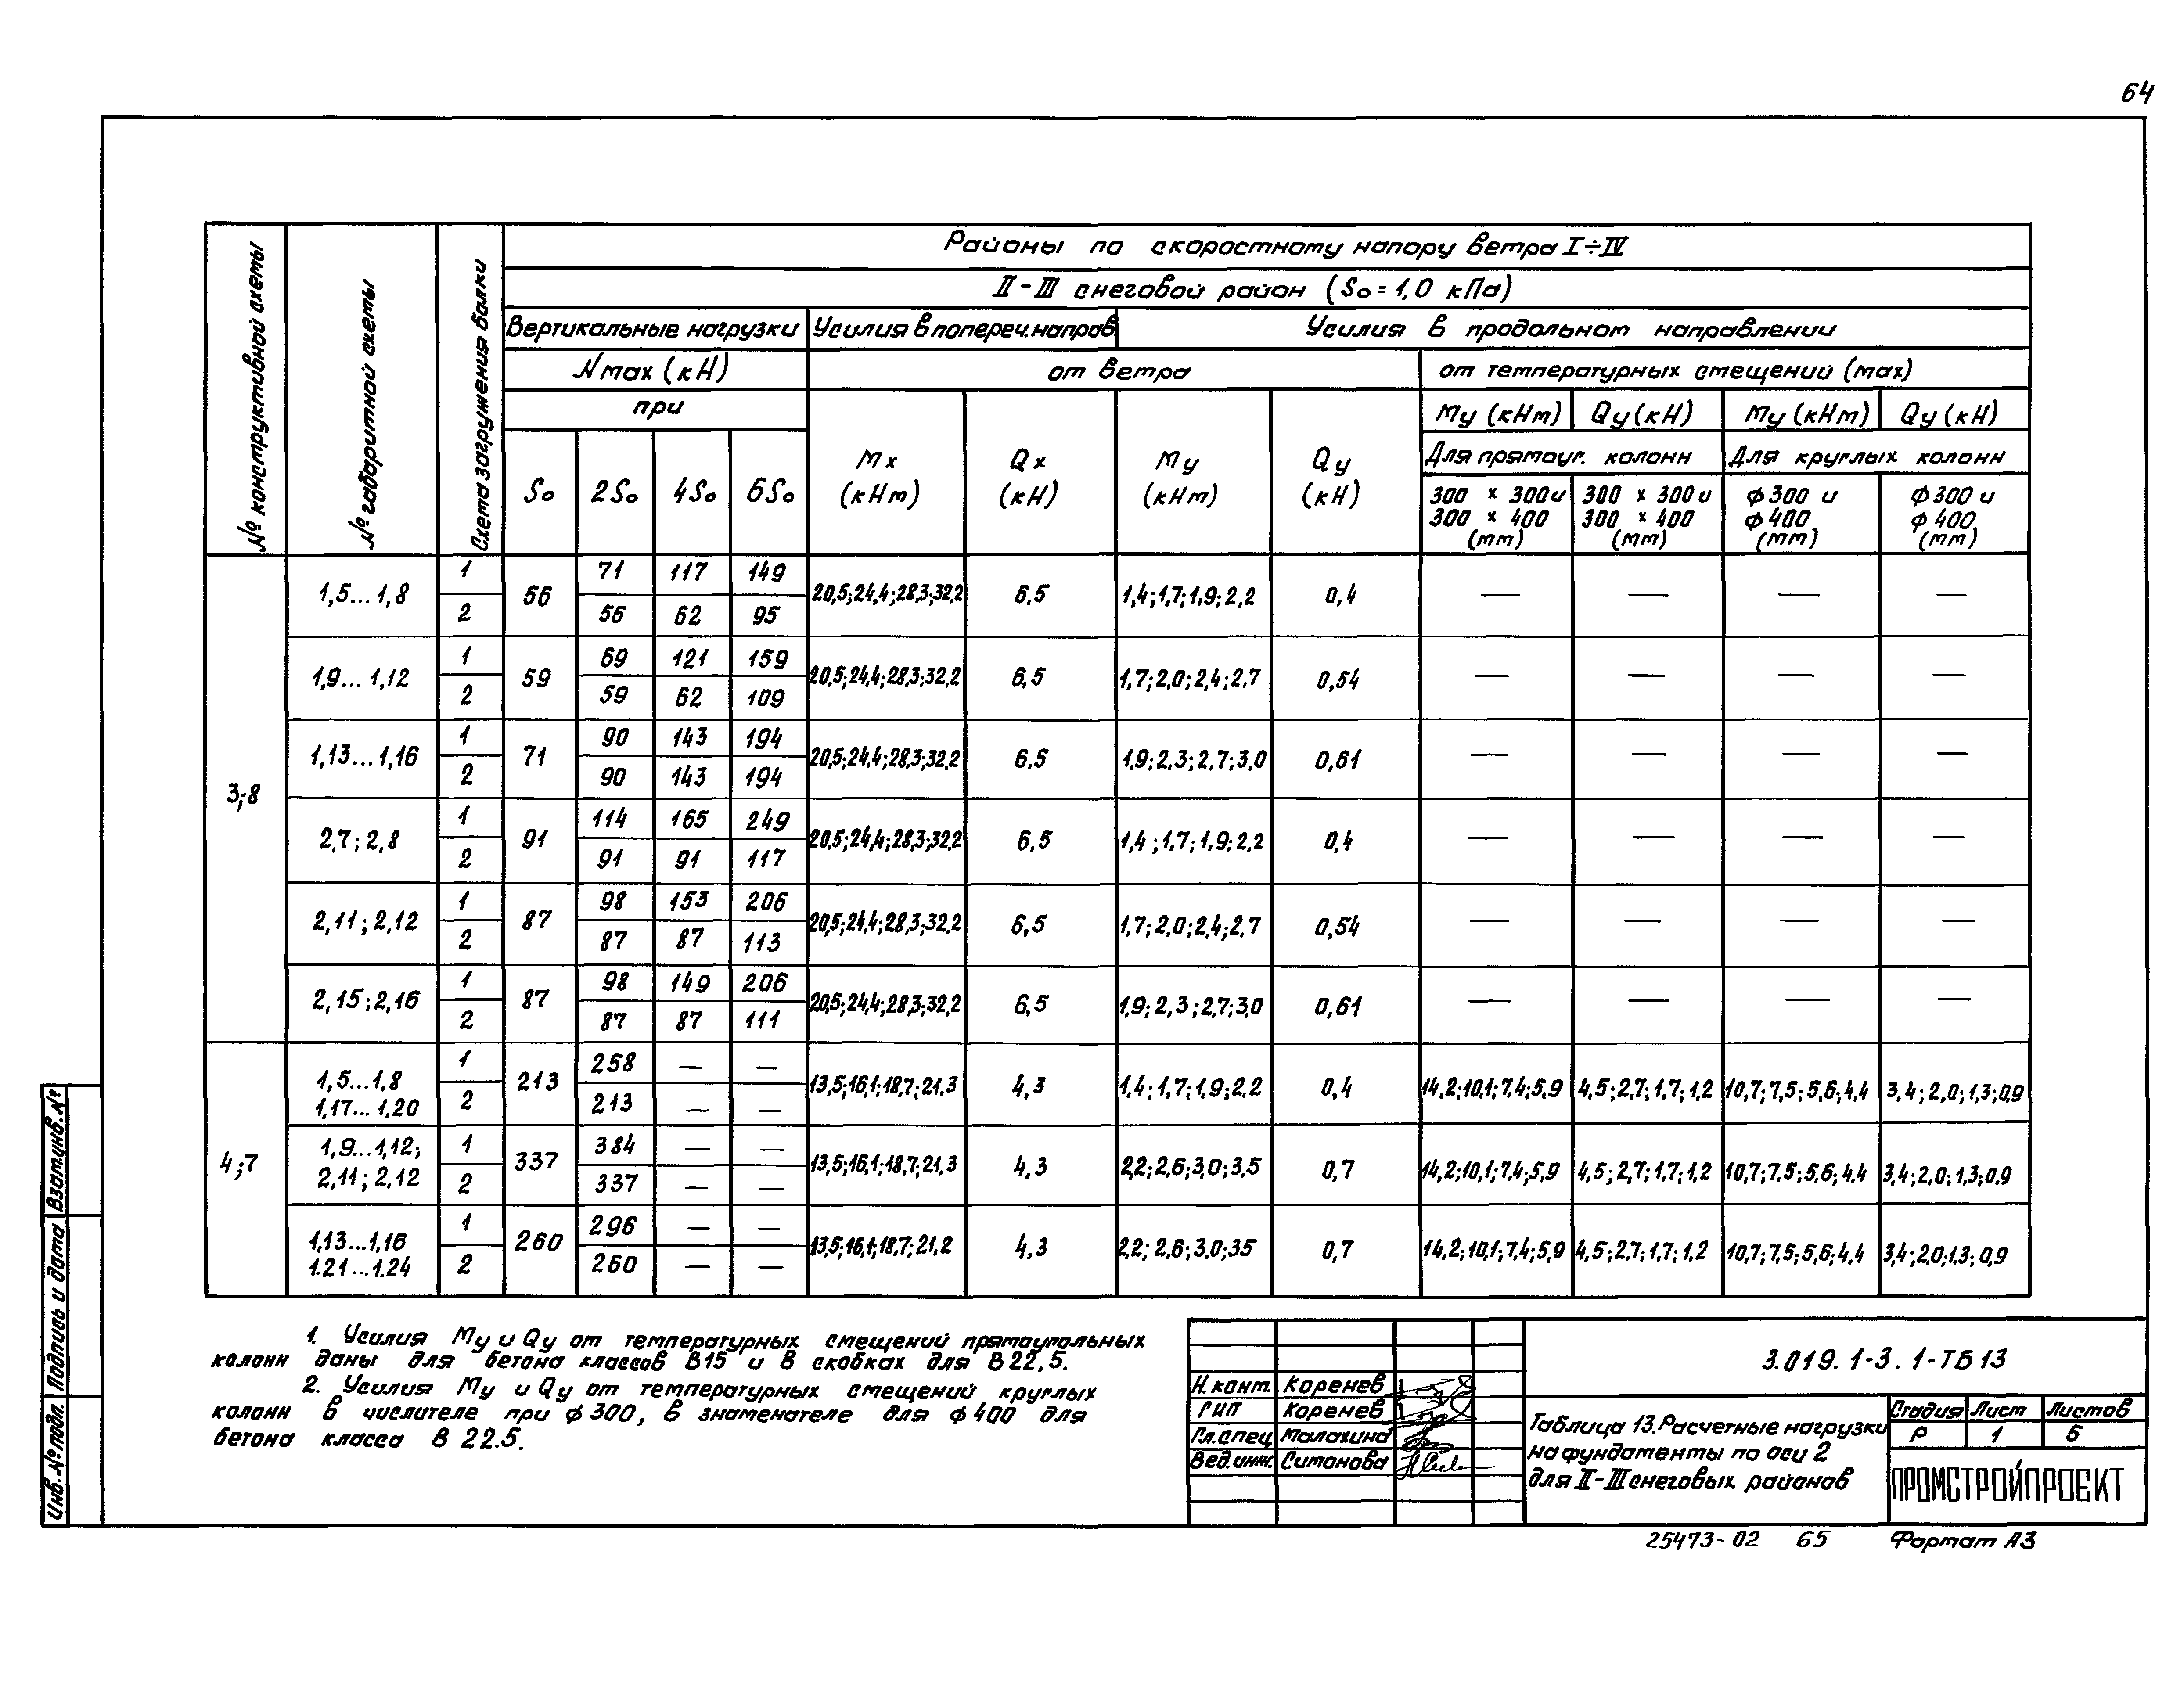 64
№ конструктивной схемы
№ габаритной схемы
Схема загружения балки
Районы по скоростному напору ветра I÷IV
II-III снеговой район (S₀=1,0 кПа)
Вертикальные нагрузки Усилия в попереч. направ Усилия в продольном направлении
Nmax (кН) от ветра от температурных смещений (max)
при
My (кНм) Qy (кН) My (кНм) Qy (кН)
Для прямоуг. колонн Для круглых колонн
S₀ 2S₀ 4S₀ 6S₀ Mx (кНм) Qx (кН) My (кНм) Qy (кН)
300 × 300 и 300 × 300 и ф300 и ф300 и
300 × 400 300 × 400 ф400 ф400
(мм) (мм) (мм) (мм)
3;8
1,5...1,8 1 56 71 117 149 20,5;24,4;28,3;32,2 6,5 1,4;1,7;1,9;2,2 0,4 — — — —
2 56 62 95
1,9...1,12 1 59 69 121 159 20,5;24,4;28,3;32,2 6,5 1,7;2,0;2,4;2,7 0,54 — — — —
2 59 62 109
1,13...1,16 1 71 90 143 194 20,5;24,4;28,3;32,2 6,5 1,9;2,3;2,7;3,0 0,61 — — — —
2 90 143 194
2,7;2,8 1 91 114 165 249 20,5;24,4;28,3;32,2 6,5 1,4;1,7;1,9;2,2 0,4 — — — —
2 91 91 117
2,11;2,12 1 87 98 153 206 20,5;24,4;28,3;32,2 6,5 1,7;2,0;2,4;2,7 0,54 — — — —
2 87 87 113
2,15;2,16 1 87 98 149 206 20,5;24,4;28,3;32,2 6,5 1,9;2,3;2,7;3,0 0,61 — — — —
2 87 87 111
4;7
1,5...1,8 1 213 258 — — 13,5;16,1;18,7;21,3 4,3 1,4;1,7;1,9;2,2 0,4 14,2;10,1;7,4;5,9 4,5;2,7;1,7;1,2 10,7;7,5;5,6;4,4 3,4;2,0;1,3;0,9
1,17...1,20 2 213 — —
1,9...1,12; 1 337 384 — — 13,5;16,1;18,7;21,3 4,3 2,2;2,6;3,0;3,5 0,7 14,2;10,1;7,4;5,9 4,5;2,7;1,7;1,2 10,7;7,5;5,6;4,4 3,4;2,0;1,3;0,9
2,11;2,12 2 337 — —
1,13...1,16 1 260 296 — — 13,5;16,1;18,7;21,2 4,3 2,2;2,6;3,0;35 0,7 14,2;10,1;7,4;5,9 4,5;2,7;1,7;1,2 10,7;7,5;5,6;4,4 3,4;2,0;1,3;0,9
1.21...1.24 2 260 — —
1. Усилия My и Qy от температурных смещений прямоугольных
колонн даны для бетона классов В15 и в скобках для В22,5.
2. Усилия My и Qy от температурных смещений круглых
колонн в числителе при ф300, в знаменателе для ф400 для
бетона класса В 22.5.
Н.конт. Коренев
ГИП Коренев
Гл.спец Малахина
Вед.инж. Симонова
3.019.1-3.1-ТБ13
Таблица 13. Расчетные нагрузки
на фундаменты по оси 2
для II-III снеговых районов
Стадия Лист Листов
Р 1 6
ПРОМСТРОЙПРОЕКТ
25473-02 65 Формат А3
Взам.инв.№
Подпись и дата
Инв.№подл.